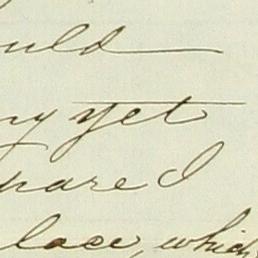 uld
ny yet
pare I
lace, which